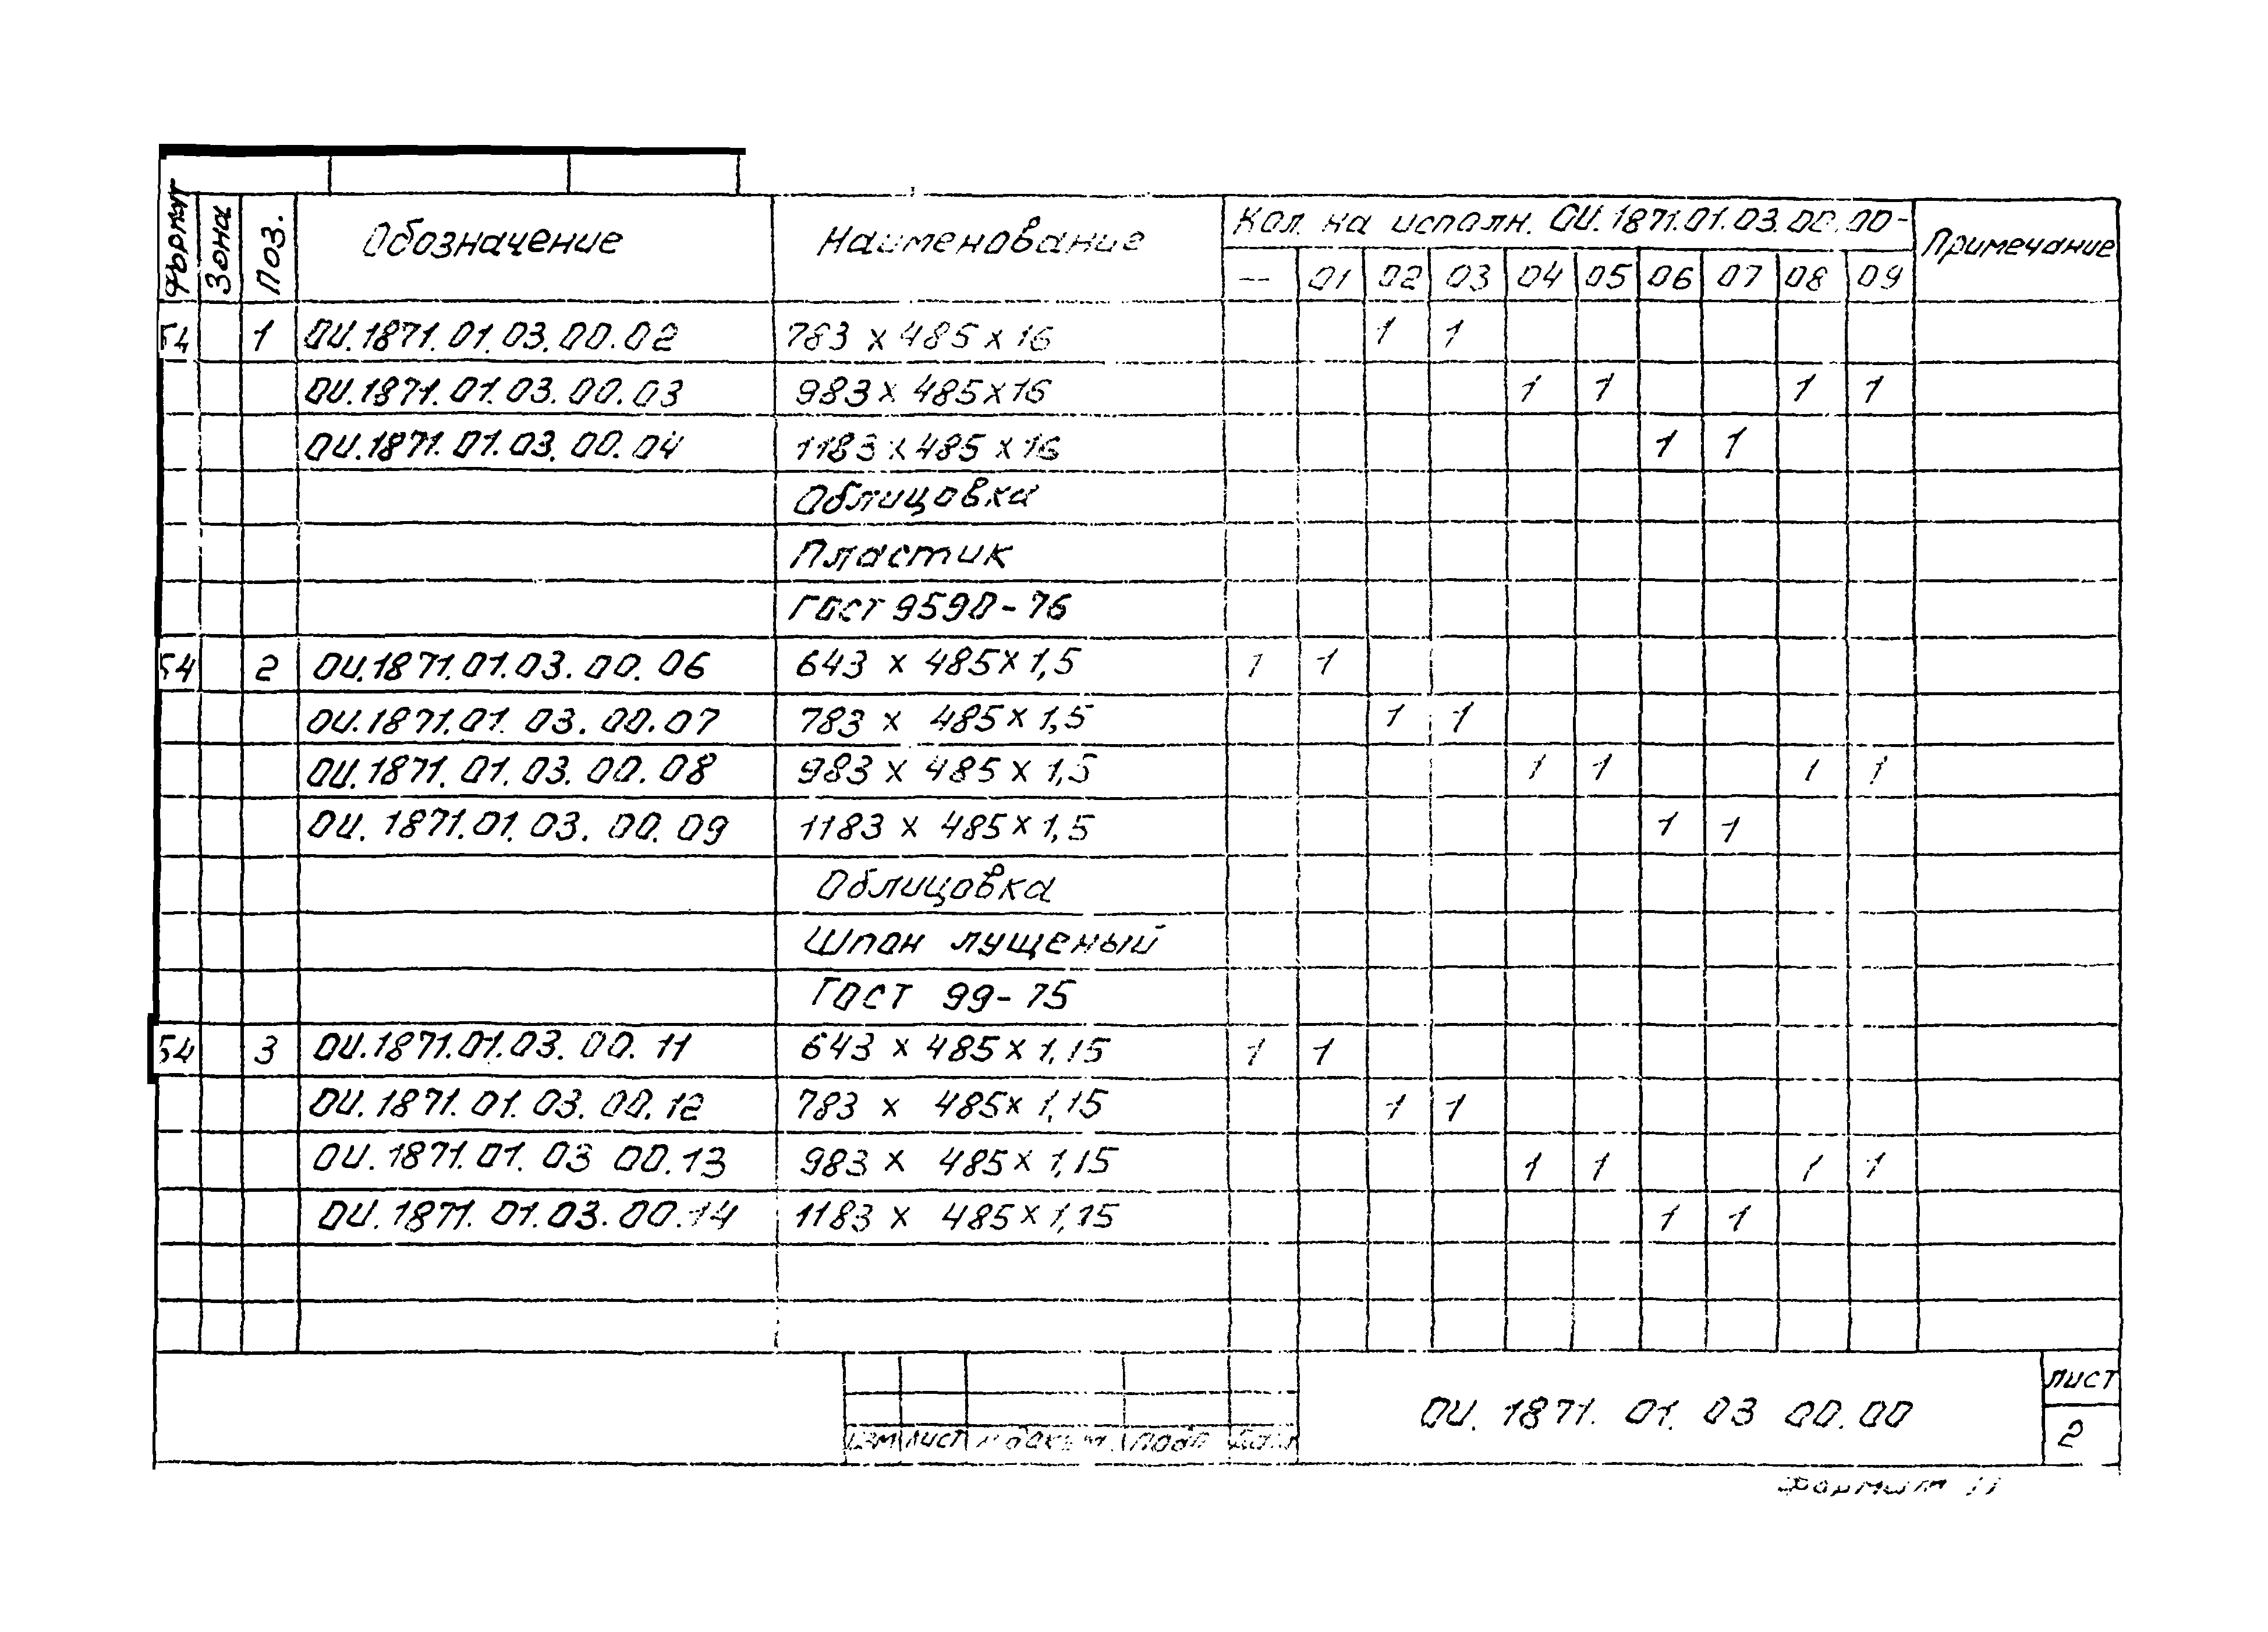 Формат Зона Поз. Обозначение Наименование Кол. на исполн. ОИ.1871.01.03.00.00- Примечание
— 01 02 03 04 05 06 07 08 09
54 1 ОИ.1871.01.03.00.02 783 х 485 х 16 1 1
ОИ.1871.01.03.00.03 983 х 485 х 16 1 1 1 1
ОИ.1871.01.03.00.04 1183 х 485 х 16 1 1
Облицовка
Пластик
Гост 9590-76
54 2 ОИ.1871.01.03.00.06 643 х 485 х 1,5 1 1
ОИ.1871.01.03.00.07 783 х 485 х 1,5 1 1
ОИ.1871.01.03.00.08 983 х 485 х 1,5 1 1 1 1
ОИ.1871.01.03.00.09 1183 х 485 х 1,5 1 1
Облицовка
Шпон лущеный
ГОСТ 99-75
54 3 ОИ.1871.01.03.00.11 643 х 485 х 1,15 1 1
ОИ.1871.01.03.00.12 783 х 485 х 1,15 1 1
ОИ.1871.01.03 00.13 983 х 485 х 1,15 1 1 1 1
ОИ.1871.01.03.00.14 1183 х 485 х 1,15 1 1
Изм Лист № докум. Подп Дата
ОИ. 1871. 01. 03 00.00
лист
2
Формат 11